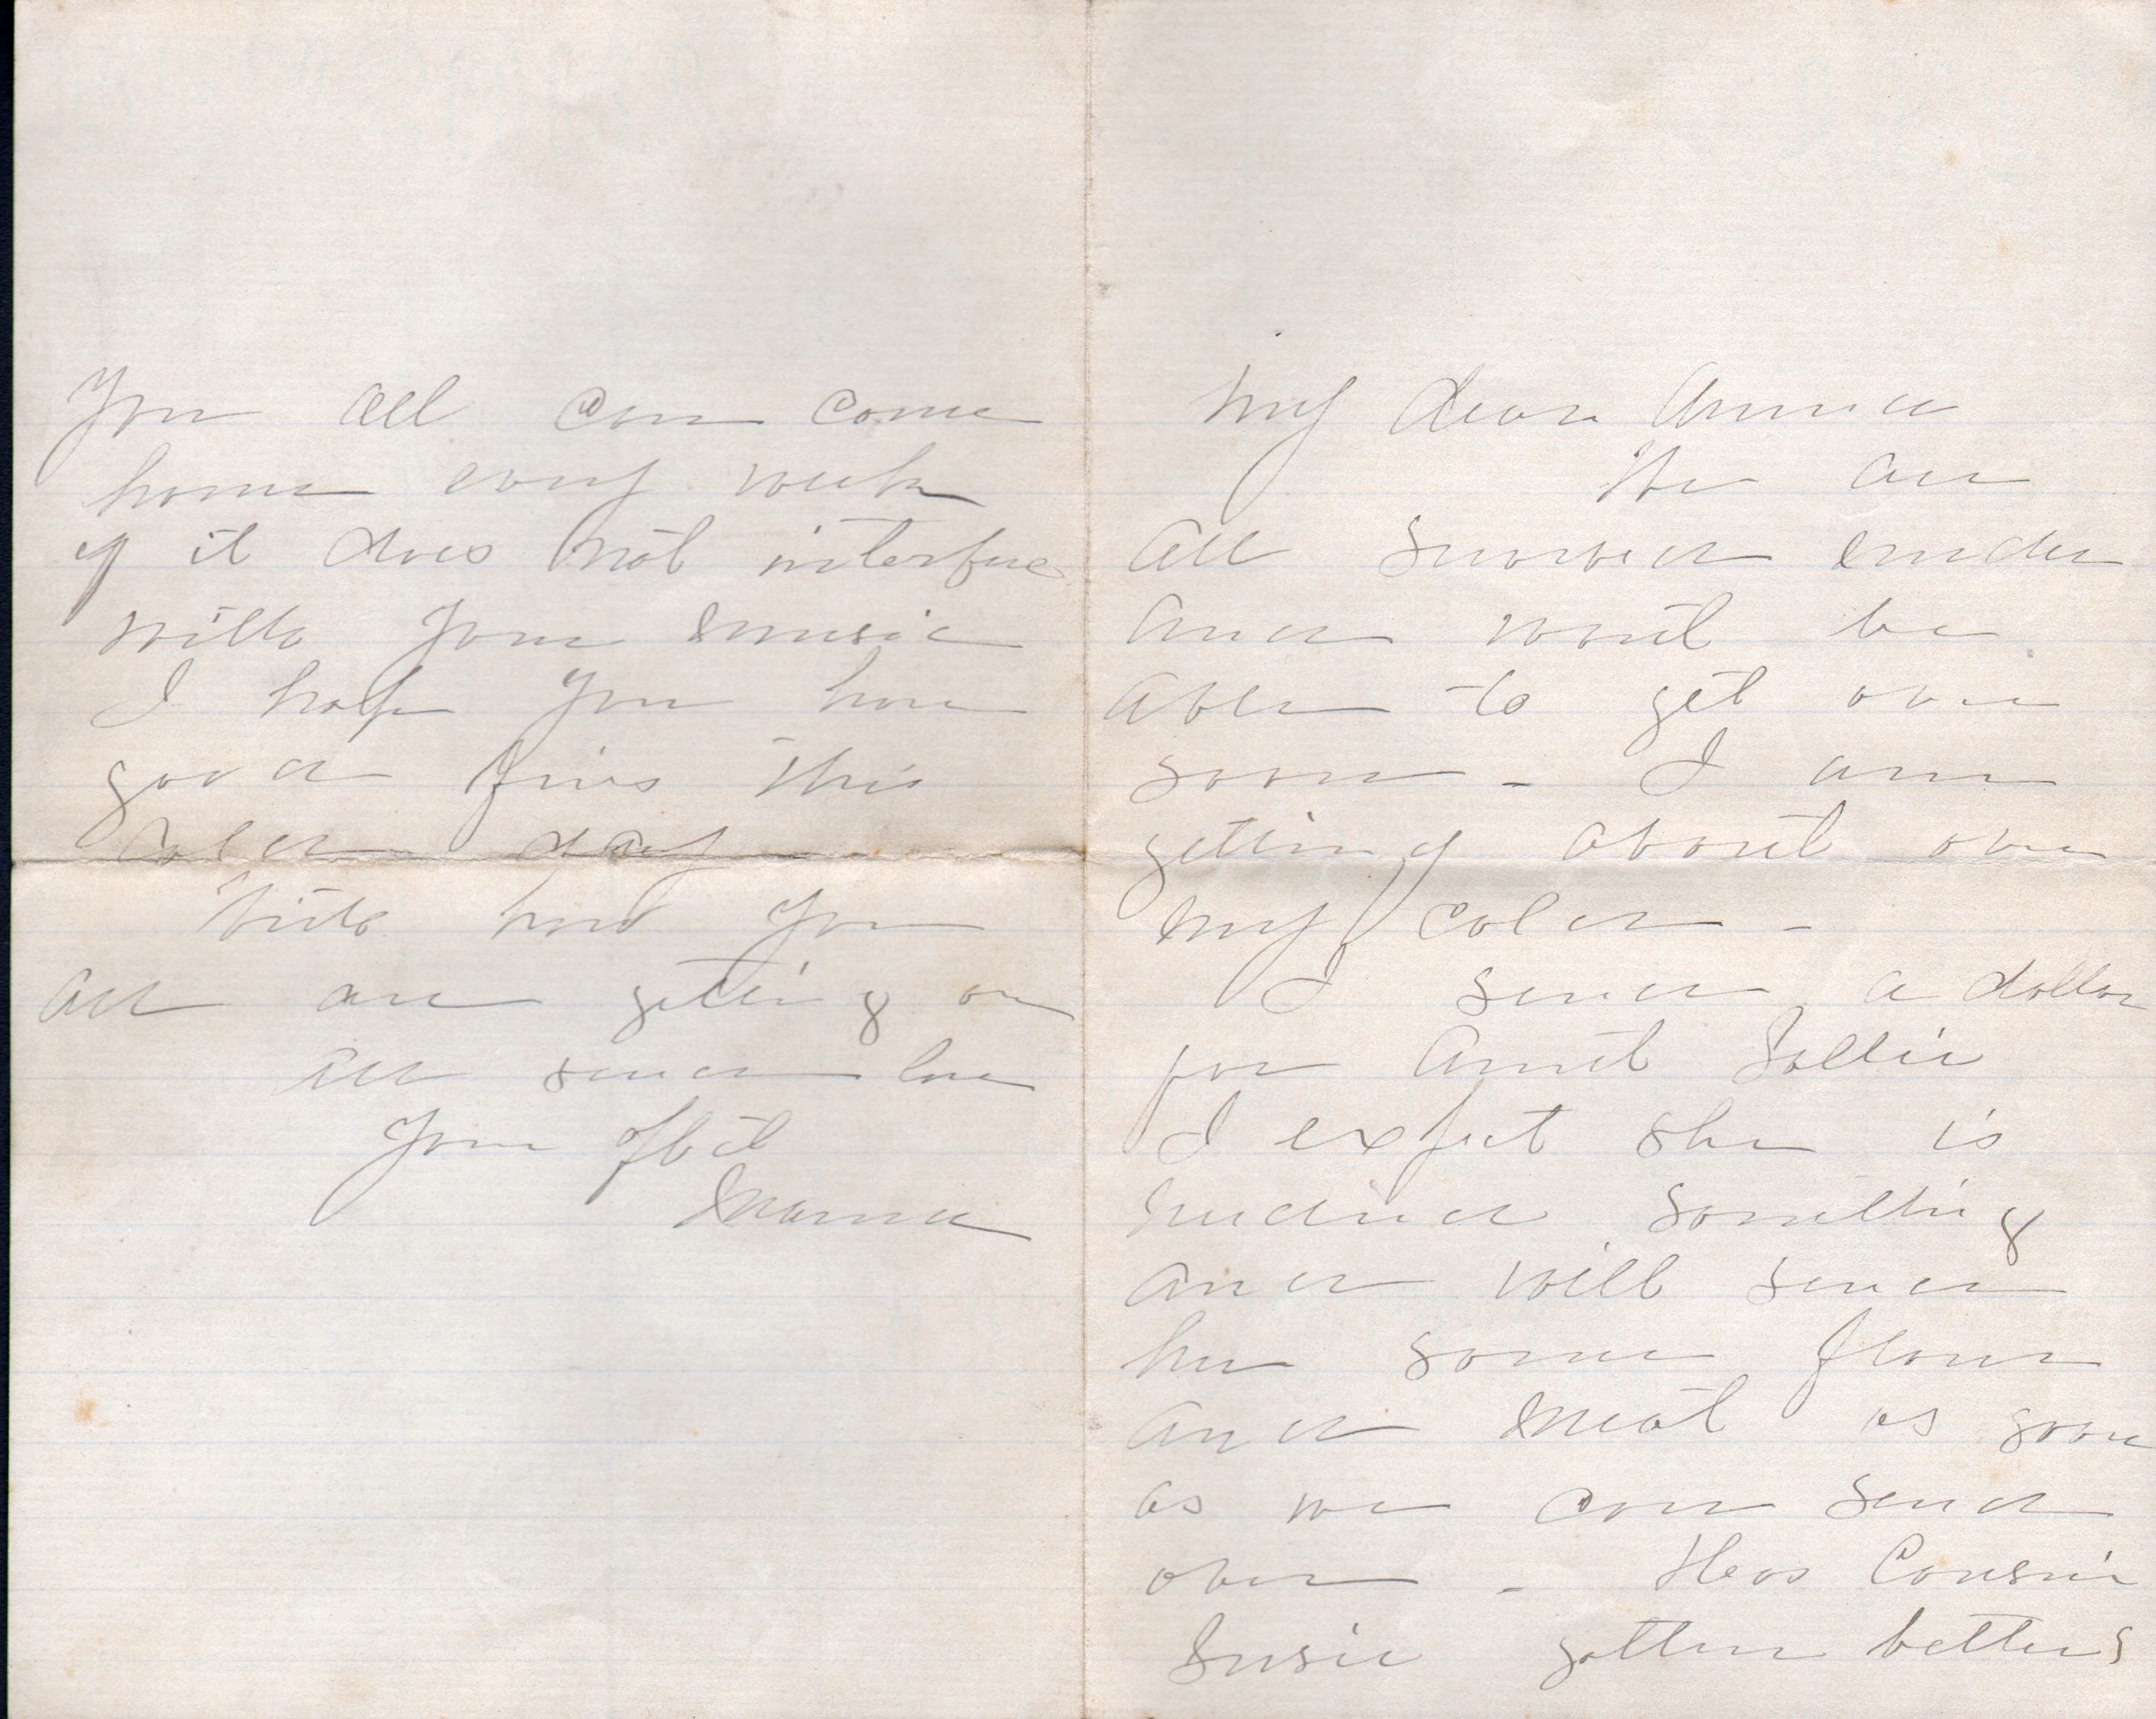 My dear Anna
We are
all snowed under
and wont be
able to get over
soon - I am
getting about over
my cold -
I send a dollar
for Aunt Sallie
I expect she is
needing something
and will send
her some flour
and meat as soon
as we can send
over - Has Cousin
Susie gotten better?
You all can come
home every week
if it does not interfere
with your music
I hope you have
good fires this
cold day
Write how you
all are getting on
All send love
Your Aft
Mama